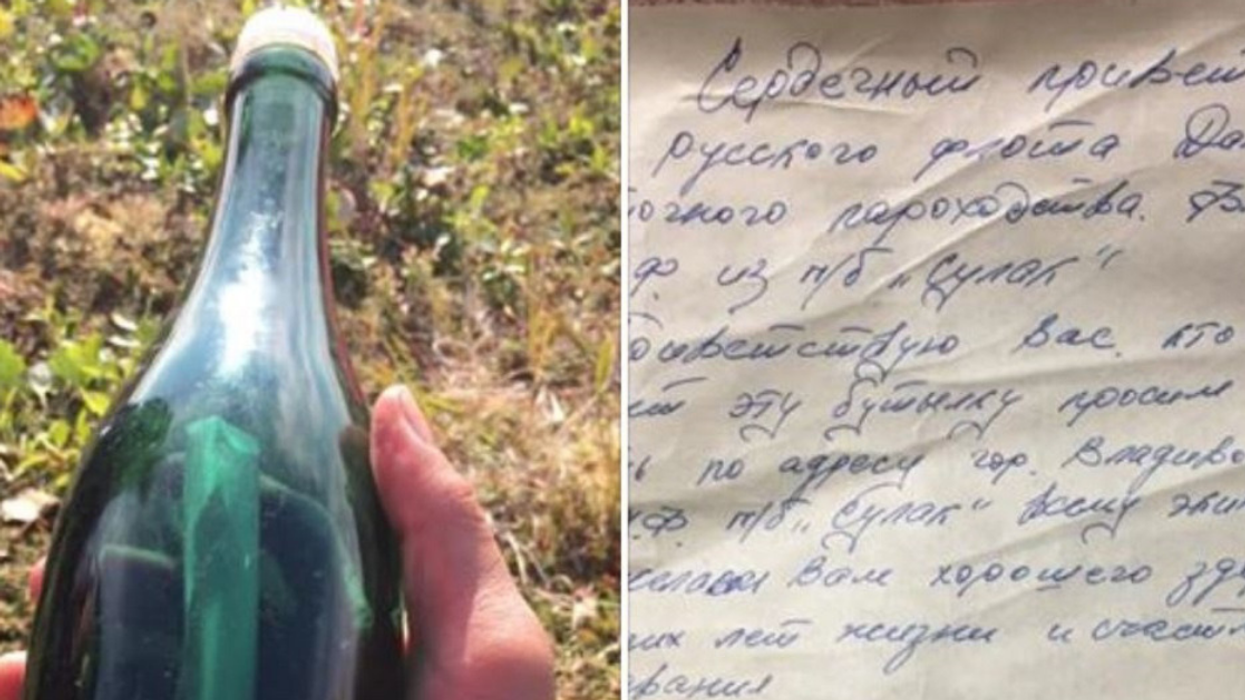 Сердечный привет
русского флота Дал
точного пароходства. В
Ф. из п/б „Сулак“
риветствую Вас, кто
ит эту бутылку просим
ь по адресу гор. Владиво
.Ф. п/б „Сулак“ всему эки
желаем Вам хорошего здо
гих лет жизни и счастл
вания